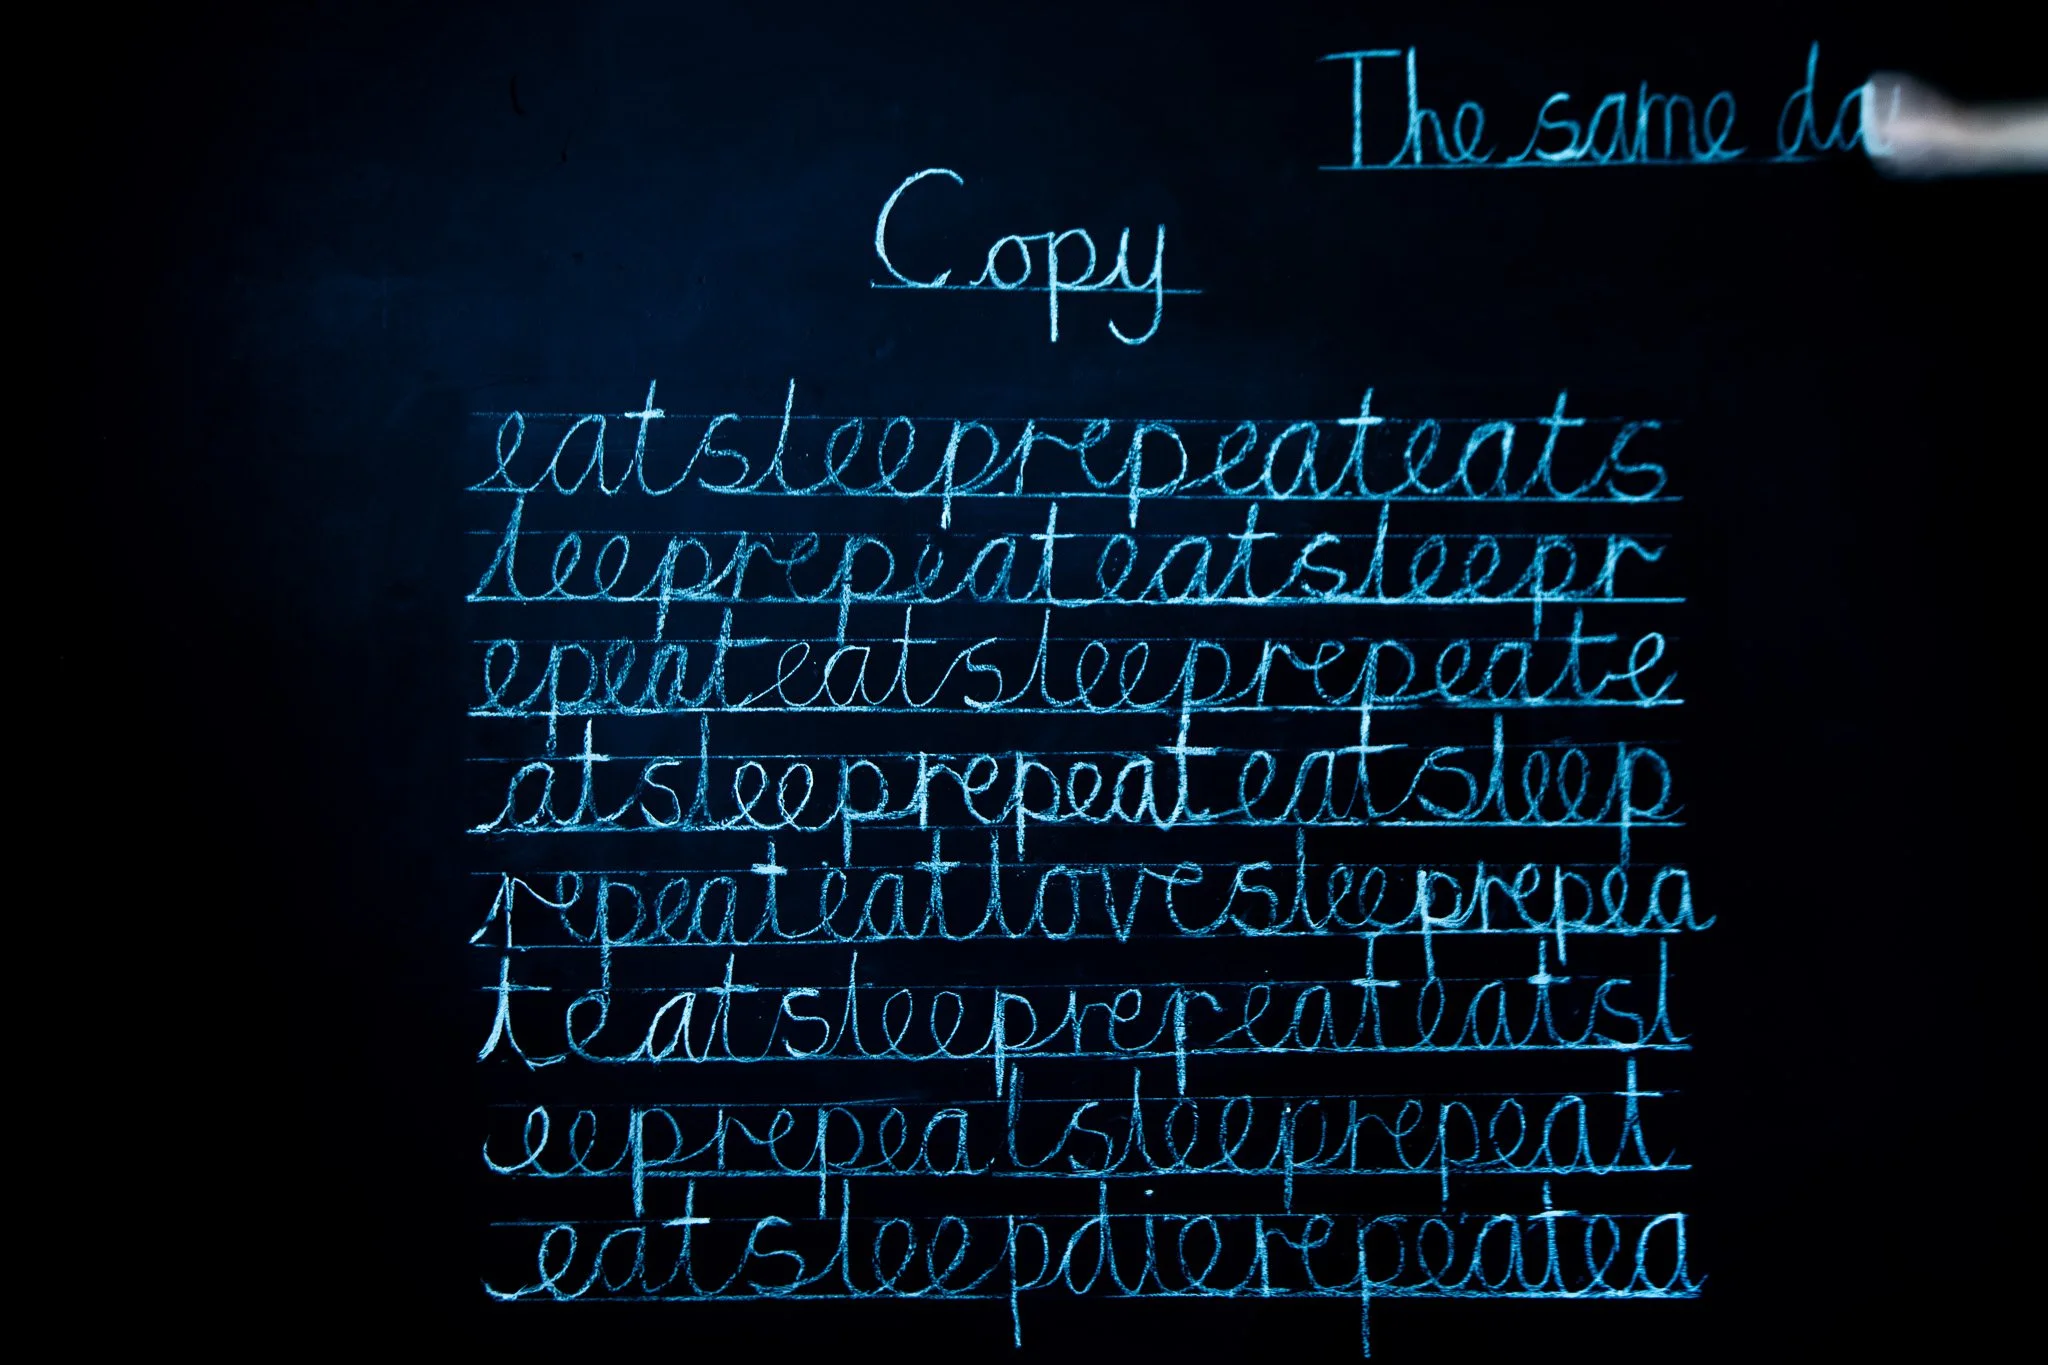 The same da
Copy
eatsleeprepeateats
leeprepeateatsleepr
epeateatsleeprepeate
atsleeprepeateatsleep
repeateatlovesleeprepea
teatsleeprereateatsl
eeprepeatsleeprepeat
eatsleepdierepeatea